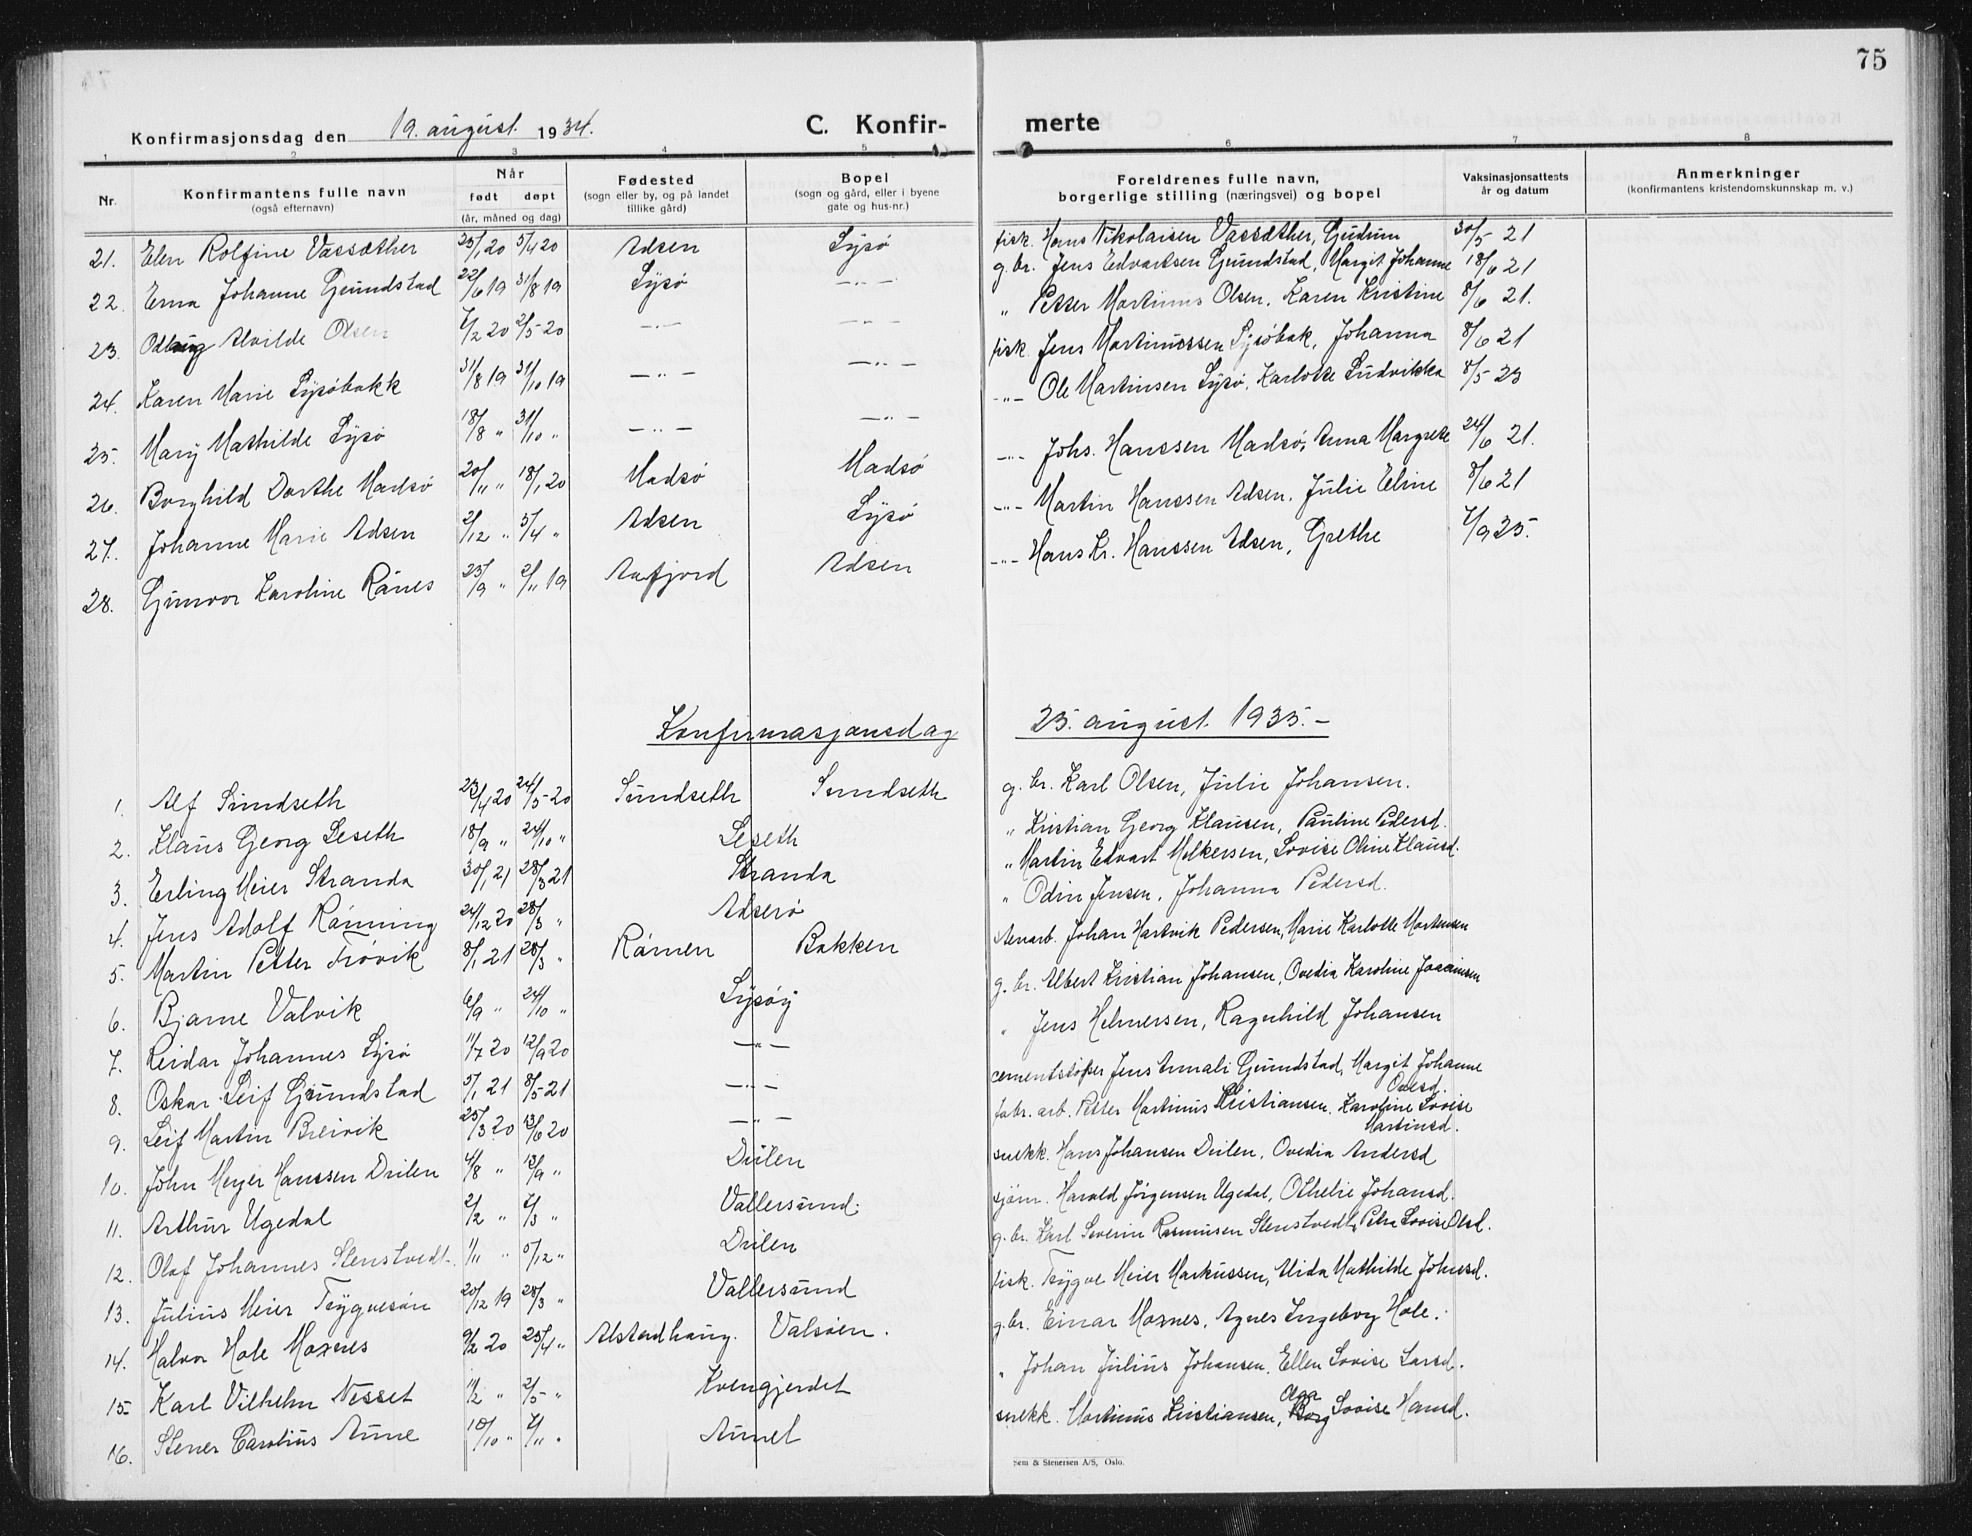 75
Konfirmasjonsdag den 19. august 1934.
C. Konfir- merte
1 2 3 4 5 6 7 8
Nr. Konfirmantens fulle navn (også efternavn) Når født døpt (år, måned og dag) Fødested (sogn eller by, og på landet tillike gård) Bopel (sogn og gård, eller i byene gate og hus-nr.) Foreldrenes fulle navn, borgerlige stilling (næringsvei) og bopel Vaksinasjonsattests år og datum Anmerkninger (konfirmantens kristendomskunnskap m. v.)
21. Elen Rolfine Vassæther 23/1 20 5/4 20 Adsen Lysø fisk. Hans Nikolaisen Vassæther, Gudrun 30/5 21
22. Erna Johanne Grundstad 22/6 19 31/8 19 Lysø —"— g. br. Jens Edvartsen Grundstad, Margit Johanne 18/6 21
23. Oddbug Alvilde Olsen 7/2 20 2/5 20 —"— —"— " Petter Martinus Olsen, Karen Kristine 8/6 21.
24. Karen Marie Lysøbakk 31/8 19 31/10 19 —"— —"— fisk. Jens Martinussen Lysøbak, Johanna 8/6 21
25. Mary Mathilde Lysø 18/8 " 31/10 " —"— —"— -"- Ole Martinsen Lysø, Karlotte Ludvikka 8/5 23
26. Borghild Dorthe Madsø 20/11 " 18/1 20 Madsø Madsø -"- Johs. Hanssen Madsø, Anna Margrete 24/6 21.
27. Johanne Marie Adsen 2/12 " 5/4 " Adsen Lysø -"- Martin Hanssen Adsen, Julie Eline 8/6 21
28. Gunvor Karoline Rånes 23/9 " 2/11 19 Aafjord Adsen -"- Hans Kr. Hanssen Adsen, Grethe 7/9 25.
Konfirmasjonsdag 25. august 1935.-
1. Alf Sundseth 23/4 20 24/5 20 Sundseth Sundseth g. br. Karl Olsen, Julie Johansen.
2. Klaus Georg Leseth 18/9 " 24/10 " Leseth " Kristian Georg Klausen, Pauline Pedersd.
3. Erling Meier Stranda 30/1 21 28/3 21 Stranda " Martin Edvart Melkersen, Lovise Oline Klausd.
4. Jens Adolf Rönning 24/12 20 28/3 " Adserø " Odin Jensen, Johanna Pedersd.
5. Martin Petter Frövik 8/1 21 28/3 " Råmen Bakken Johan Hartvik Pedersen, Marie Karlotte Mortensen
6. Bjarne Valvik 6/9 " 24/10 " Lysøy g. br. Albert Kristian Johansen, Ovedia Karoline Joacimsen
7. Reidar Johannes Lysø 11/7 20 12/9 20 —"— " Jens Helmersen, Ragnhild Johansen
8. Oskar Leif Grundstad 5/1 21 8/5 21 —"— cementstøper Jens Annali Grundstad, Margit Johanne Ovesd.
9. Leif Martin Breivik 25/3 20 13/6 20 —"— fabr. arb. Petter Martinus Kristiansen, Karoline Lovise Martinsd.
10. John Meyer Hanssen Duilen 4/8 " 12/9 " Duilen snekk. Hans Johansen Duilen, Ovedia Andersd
11. Arthur Ugedal 2/2 " 7/3 " Vallersund. sjøm. Harald Jörgensen Ugedal, Othelie Johansd.
12. Olaf Johannes Stenstvedt 1/11 " 5/12 " Duilen g. br. Karl Severin Rasmussen Stenstvedt, Petra Lovise Olsd.
13. Julius Meier Trygvesön 20/12 19 28/3 " Vallersund fisk. Trygve Meier Markussen, Alida Mathilde Johnsd.
14. Halvor Hole Moxnes 9/2 20 25/4 " Alstadhaug. Valsøen. g. br. Einar Moxnes, Agnes Ingeborg Hole.
15. Karl Vilhelm Nesset 11/2 " 2/5 " Kvengjerdet " Johan Julius Johansen, Ellen Lovise Larsd.
16. Stener Carolius Aune 10/10 " 7/11 " Aunet snekk. Martinus Kristiansen, Olga Lovise Hansd.
Sem & Stenersen A/S, Oslo.